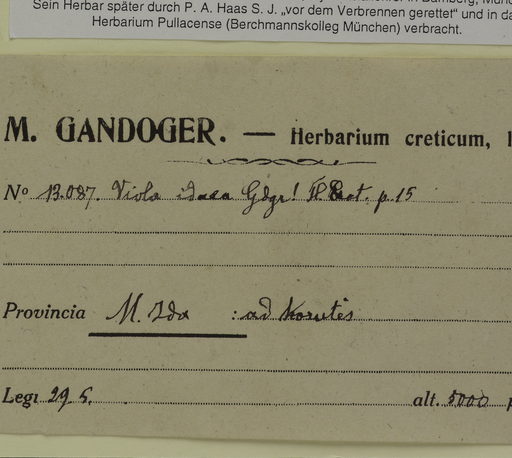 Sein Herbar später durch P. A. Haas S. J. „vor dem Verbrennen gerettet“ und in da
Herbarium Pullacense (Berchmannskolleg München) verbracht.
M. GANDOGER. — Herbarium creticum,
Nº 13.087. Viola idaea Gdgr! Fl. Cret. p. 15
Provincia M. Ida : ad Korutes
Legi 29 5. alt. 5000 p